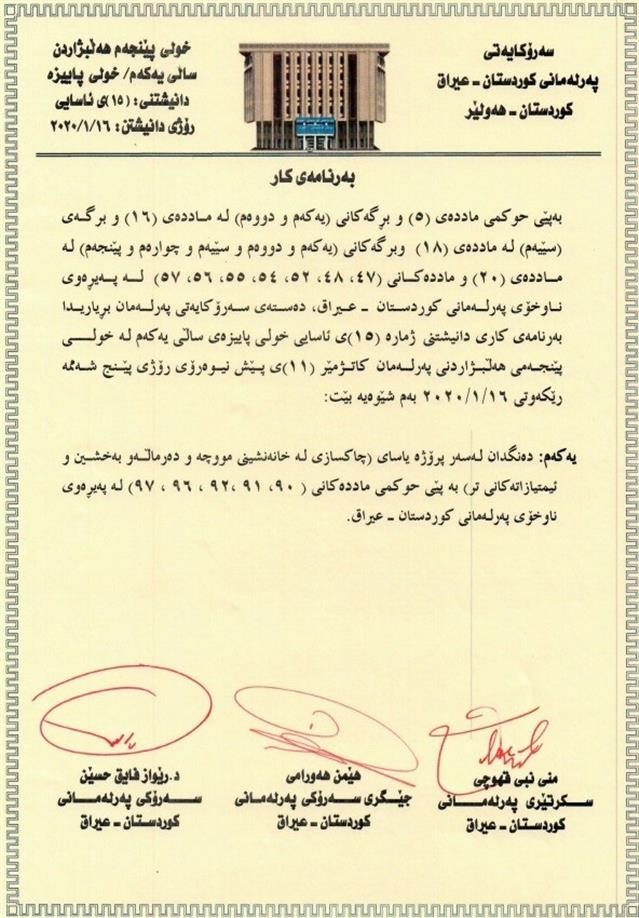 سەرۆکایەتی
پەرلەمانی کوردستان ـ عیراق
کوردستان ـ هەولێر
خولی پێنجەم هەڵبژاردن
ساڵی یەکەم/ خولی پاییزە
دانیشتنی: (١٥)ی ئاسایی
رۆژی دانیشتن: ٢٠٢٠/١/١٦
بەرنامەی کار
بەپێی حوکمی ماددەی (٥) و برگەکانی (یەکەم و دووەم) لە ماددەی (١٦) و برگەی
(سێیەم) لە ماددەی (١٨) وبرگەکانی (یەکەم و دووەم و سێیەم و چوارەم و پێنجەم) لە
ماددەی (٢٠) و ماددەکانی (٤٧، ٤٨، ٥٢، ٥٤، ٥٥، ٥٦، ٥٧) لە پەیڕەوی
ناوخۆی پەرلەمانی کوردستان ـ عیراق، دەستەی سەرۆکایەتی پەرلەمان بڕیاریدا
بەرنامەی کاری دانیشتنی ژمارە (١٥)ی ئاسایی خولی پاییزەی ساڵی یەکەم لە خولی
پێنجەمی هەڵبژاردنی پەرلەمان کاتژمێر (١١)ی پێش نیوەرۆی رۆژی پێنج شەممە
رێکەوتی ٢٠٢٠/١/١٦ بەم شێوەیە بێت:
یەکەم: دەنگدان لەسەر پرۆژە یاسای (چاکسازی لە خانەنشینی مووچە و دەرماڵەو بەخشین و
ئیمتیازاتەکانی تر) بە پێی حوکمی ماددەکانی (٩٠، ٩١، ٩٢، ٩٦، ٩٧) لە پەیڕەوی
ناوخۆی پەرلەمانی کوردستان ـ عیراق.
منی نبی قهوچی
سکرتێری پەرلەمانی
کوردستان ـ عیراق
هێمن هەورامی
جێگری سەرۆکی پەرلەمانی
کوردستان ـ عیراق
د.رێواز فایق حسێن
سەرۆکی پەرلەمانی
کوردستان ـ عیراق